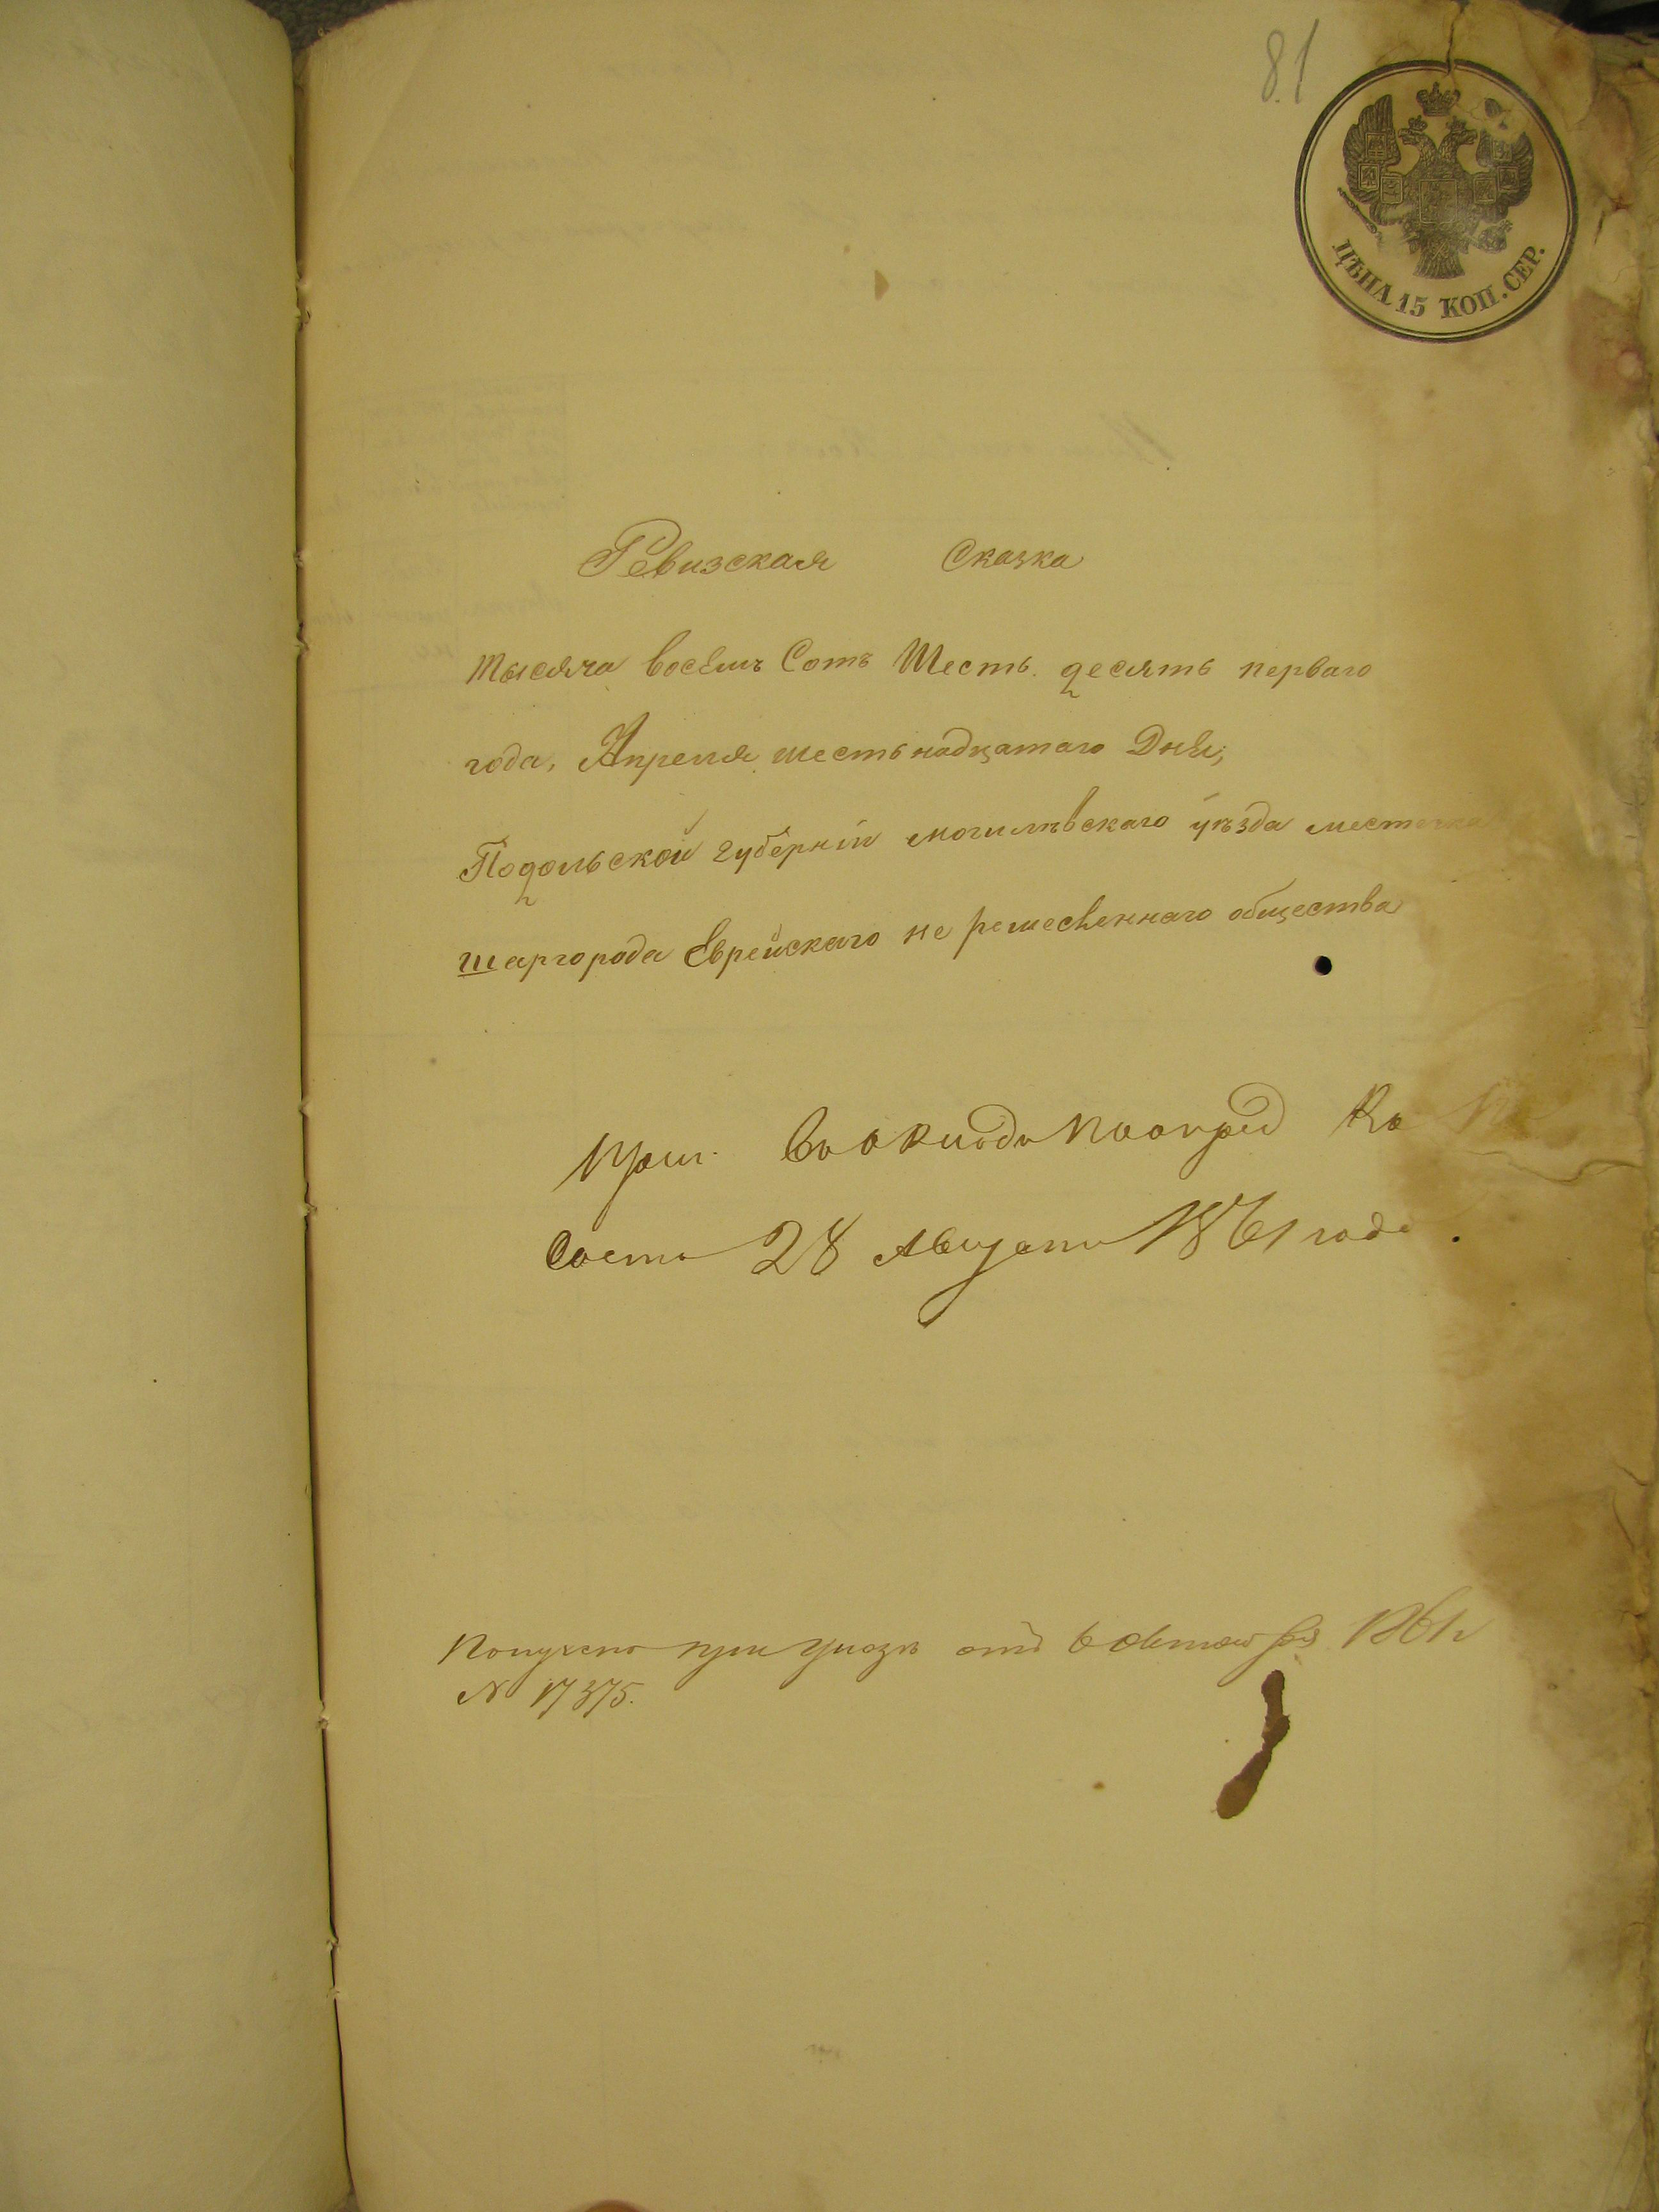 81
ЦѢНА 15 КОП. СЕР.
Ревизская Сказка
тысяча восемъ Сотъ Шесть десять перваго
года, Апреля шестьнадцатаго Дня,
Подольской губерніи могилѣвскаго уѣзда местечка
шаргорода Еврейскаго не ремесленнаго общества
При
28 Августа 1861 года.
Получено при Указѣ отъ 6 Октября 1861 г
№ 17375.